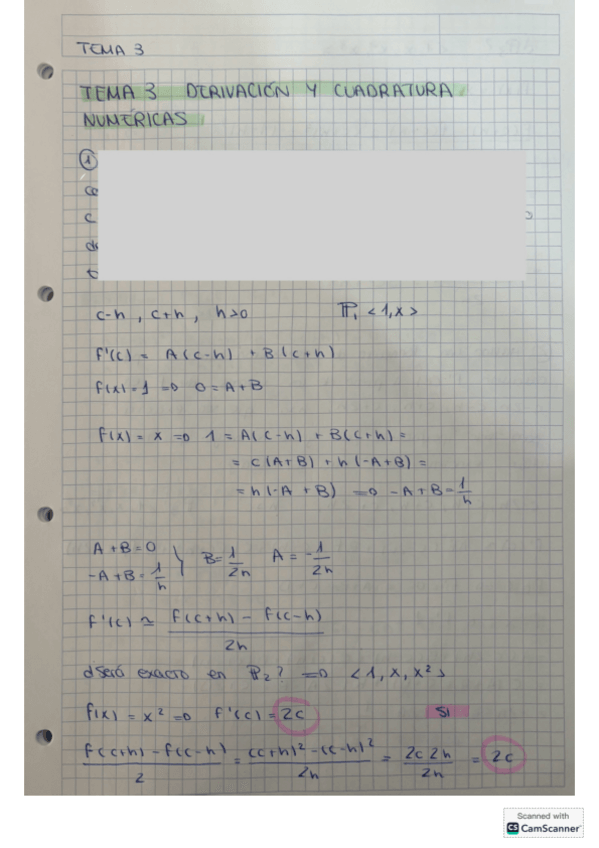 TEMA 3
TEMA 3 DERIVACIÓN Y CUADRATURA
NUMÉRICAS
①
c-h , c+h , h>0 ℙ₁ <1,x>
f'(c) = A(c-h) + B(c+h)
f(x) = 1 => 0 = A+B
f(x) = x => 1 = A(c-h) + B(c+h) =
= c(A+B) + h(-A+B) =
= h(-A + B) => -A+B = 1/h
A+B=0
-A+B = 1/h } B = 1/2h A = -1/2h
f'(c) ≃ f(c+h) - f(c-h) / 2h
¿Será exacto en ℙ₂? => <1, x, x²>
f(x) = x² => f'(c) = 2c SI
f(c+h) - f(c-h) / 2 = (c+h)² - (c-h)² / 2h = 2c 2h / 2h = 2c
Scanned with
CS CamScanner